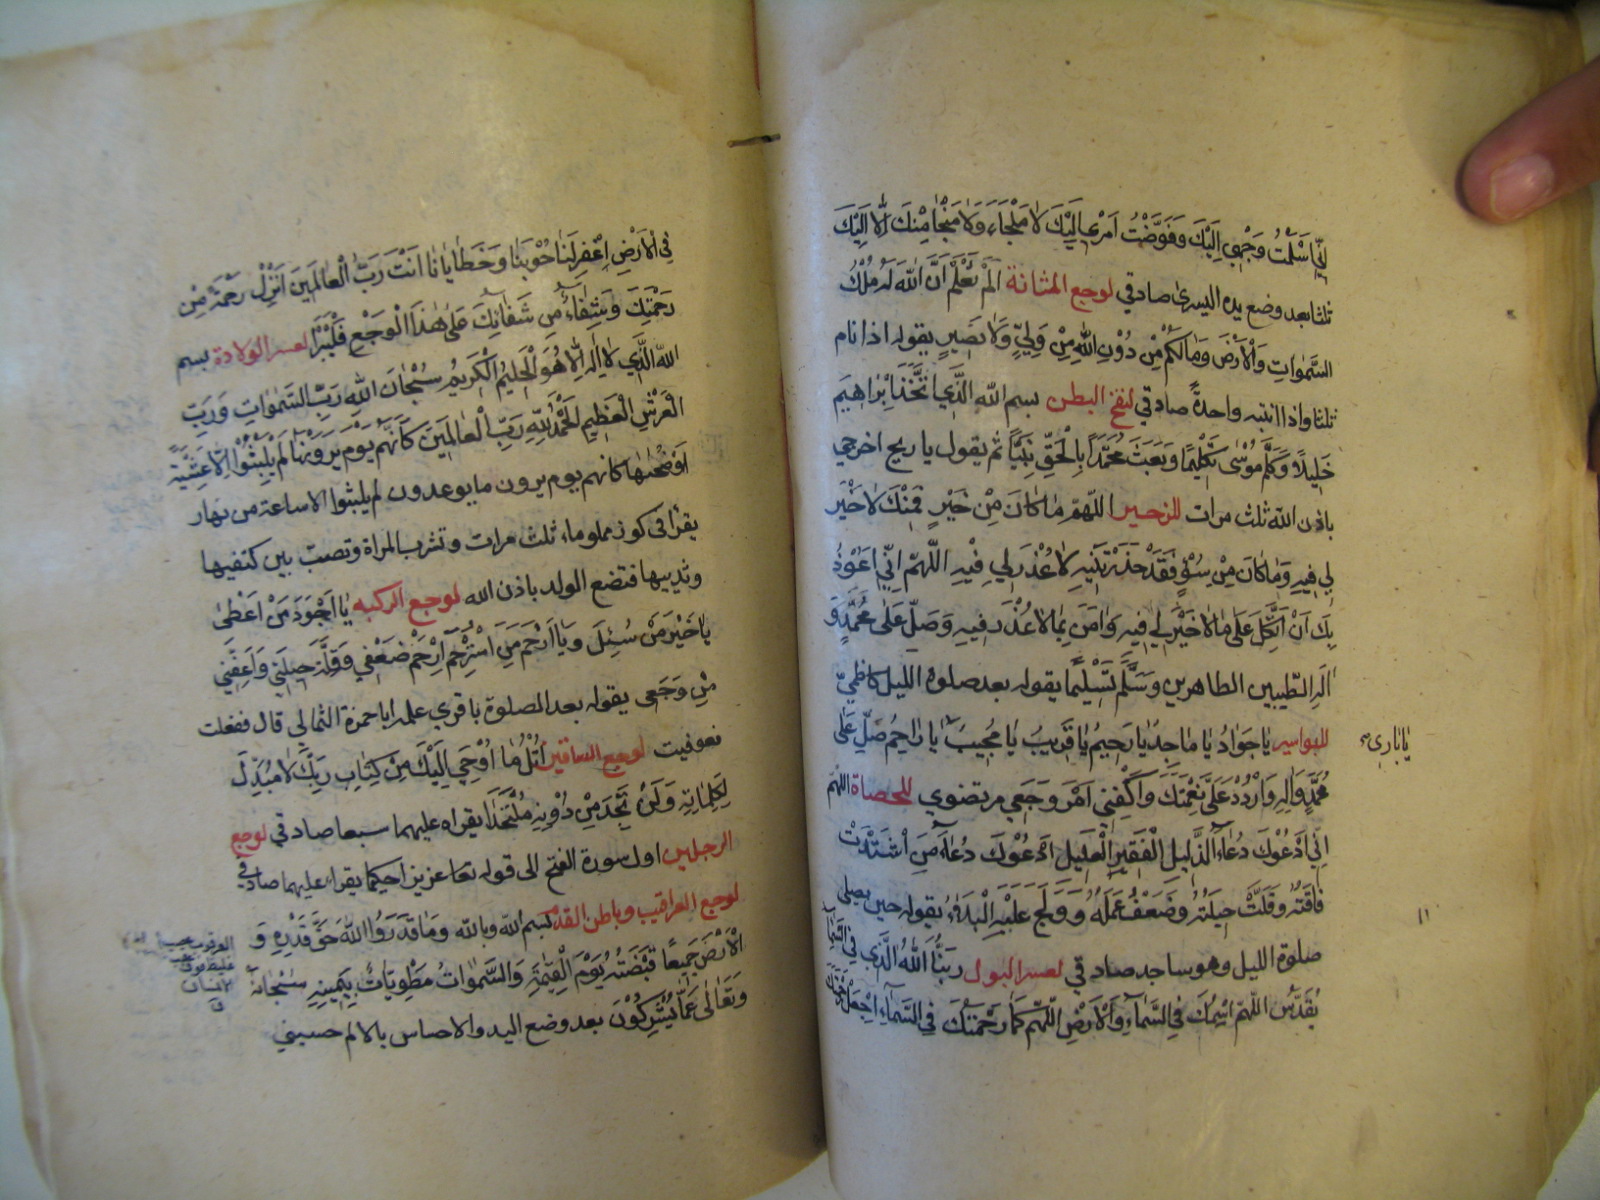 اِنِّي اَسْلَمْتُ وَجْهِي اِلَيْكَ وَفَوَّضْتُ اَمْرِي اِلَيْكَ لَا مَلْجَاءَ وَلَا مَنْجَا مِنْكَ اِلَّا اِلَيْكَ
ثلثا بعد وضع يده اليسرى صادقي لوجع المثانة اَلَمْ تَعْلَمْ اَنَّ اللهَ لَهُ مُلْكُ
السَّمٰوَاتِ وَالْاَرْضَ وَمَا لَكُمْ مِنْ دُوْنِ اللهِ مِنْ وَلِيٍّ وَلَا نَصِيرٍ يقوله اذا نام
ثلثا واذا انتبه واحدةً صادقي لنفخ البطن بسم الله الَّذِي اتَّخَذَ اِبْرَاهِيمَ
خَلِيلًا وَكَلَّمَ مُوْسٰى تَكْلِيْمًا وَبَعَثَ مُحَمَّدًا بِالْحَقِّ نَبِيًّا ثم يقول يا ريح اخرجي
باذن الله ثلث مرات للزحير اللّٰهُمَّ مَا كَانَ مِنْ خَيْرٍ فَمِنْكَ لَا خَيْرَ
لِي فِيهِ وَمَا كَانَ مِنْ سُوْءٍ فَقَدْ حَذَّرْتَنِيهِ لَا عُذْرَ لِي فِيْهِ اللّٰهُمَّ اِنِّي اَعُوْذُ
بِكَ اَنْ اَتَّكِلَ عَلَى مَا لَا خَيْرَ لِي فِيهِ وَاٰمَنَ بِمَا لَا عُذْرَ فِيهِ وَصَلِّ عَلَى مُحَمَّدٍ وَ
اٰلِهِ الطَّيِّبِين الطاهرين وَسَلَّمَ تَسْلِيْمًا يقوله بعد صلوة الليل كاظميّ
للبواسير يَا جَوَادُ يَا مَاجِدُ يَا رَحِيمُ يَا قَرِيبُ يَا مُجِيبُ يَا رَاحِمُ صَلِّ عَلَى
يَا بَارِئ
مُحَمَّدٍ وَاٰلِهِ وَارْدُدْ عَلَيَّ نِعْمَتَكَ وَاكْفِنِي اَمْرَ وَجَعِي مرتضوي للحصاة اللّٰهُمَّ
اِنِّي اَدْعُوْكَ دُعَاءَ الذَّلِيلِ الْفَقِيْرِ الْعَلِيلِ اَدْعُوْكَ دُعَاءَ مَنِ اشْتَدَّتْ
فَاقَتُهُ وَقَلَّتْ حِيلَتُهُ وَضَعُفَ عَمَلُهُ وَ عَلَيْهِ الْبَلَاءُ يقوله حين يصلى
صلوة الليل وهو ساجد صادقي لعسر البول رَبُّنَا اللهُ الَّذِي فِي السَّمَاءِ
تَقَدَّسَ اللّٰهُمَّ اسْمُكَ فِي السَّمَاءِ وَالْاَرْضِ اللّٰهُمَّ كَمَا رَحْمَتُكَ فِي السَّمَاءِ اجْعَلْ رَحْمَتَكَ
فِي الْاَرْضِ اِغْفِرْ لَنَا حُوْبَنَا وَخَطَايَانَا اَنْتَ رَبُّ الْعَالَمِيْنَ اَنْزِلْ رَحْمَةً مِنْ
رَحْمَتِكَ وَشِفَاءً مِنْ شَفَائِكَ عَلَى هٰذَا الْوَجَعِ فَلْيَبْرَأْ لعسر الولادة بسم
اللهِ الَّذِي لَا اِلٰهَ اِلَّا هُوَ الْحَلِيْمُ الْكَرِيمُ سُبْحَانَ اللهِ رَبِّ السَّمٰوَاتِ وَرَبِّ
الْعَرْشِ الْعَظِيْمِ اَلْحَمْدُ لِلّٰهِ رَبِّ الْعَالَمِيْنَ كَاَنَّهُمْ يَوْمَ يَرَوْنَهَا لَمْ يَلْبَثُوْا اِلَّا عَشِيَّةً
اَوْ ضُحٰيهَا كانهم يوم يرون ما يوعدون لم يلبثوا الا ساعة من نهار
يقرا في كوز مملو ماء ثلث مرات وتشرب المراة وتصب بين كتفيها
وثدييها فتضع الولد باذن الله لوجع الركبه يَا اَجْوَدَ مَنْ اَعْطٰى
يَا خَيْرَ مَنْ سُئِلَ وَيَا اَرْحَمَ مَنِ اسْتُرْحِمَ اِرْحَمْ ضَعْفِي وَقِلَّةَ حِيلَتِي وَاعْفِنِي
مِنْ وَجَعِي يقوله بعد الصلوة باقري علمه ابا حمزة الثمالي قال ففعلت
فعوفيت لوجع الساقين اُتْلُ مَا اُوْحِيَ اِلَيْكَ مِنْ كِتَابِ رَبِّكَ لَا مُبَدِّلَ
لِكَلِمَاتِهِ وَلَنْ تَجِدَ مِنْ دُوْنِهِ مُلْتَحَدًا يقراه عليهما سبعا صادقي لوجع
الرجلين اول سورة الفتح الى قوله تعا عزيزا حكيما يقراء عليهما صادقي
لوجع العراقيب وباطن القدم بسم الله وبالله وَمَا قَدَرُوا اللهَ حَقَّ قَدْرِهِ وَ
الْاَرْضَ جَمِيعًا قَبْضَتُهُ يَوْمَ الْقِيٰمَةِ وَالسَّمٰوَاتُ مَطْوِيَّاتٌ بِيَمِينِهِ سُبْحَانَهُ
وَتَعَالٰى عَمَّا يُشْرِكُوْنَ بعد وضع اليد والاحساس بالالم حسيني